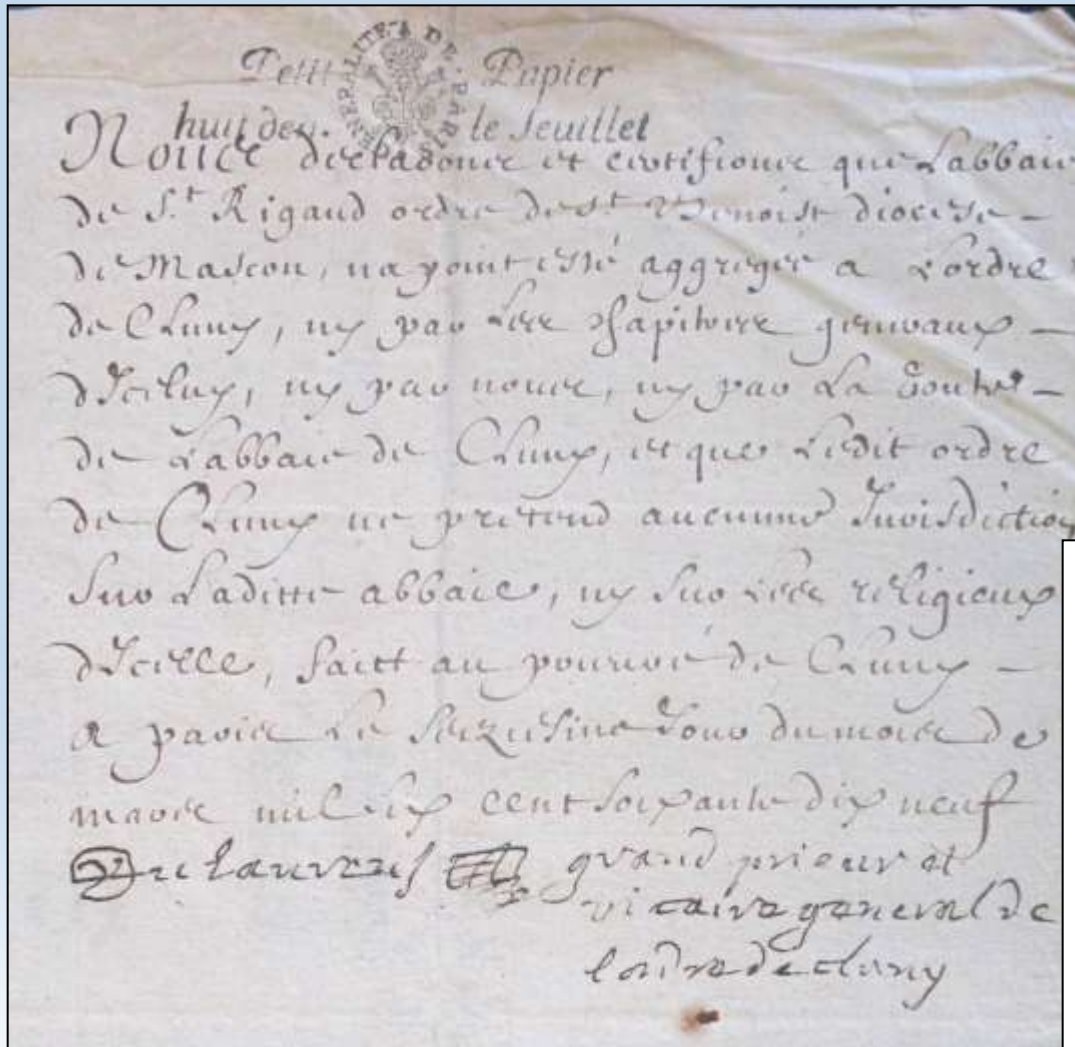 Petit Papier
GENERALITE DE PARIS
huit den. le feuillet
Nous declarons et certifions que Labbaie
de St. Rigaud ordre de St. Benoist diocese
de Mascon, na point esté aggregée a Lordre
de Cluny, ny par Les chapitres generaux
dIceluy, ny par nous, ny par La voute
de Labbaie de Cluny, et que Ledit ordre
de Cluny ne pretend aucunne Jurisdiction
sur Laditte abbaie, ny sur Les religieux
dIcelle, faict au prieuré de Cluny
a paris Le seiziesme Jour du mois de
mars mil six cent soixante dix neuf
grand prieur et
vicaire general de
lordre de cluny